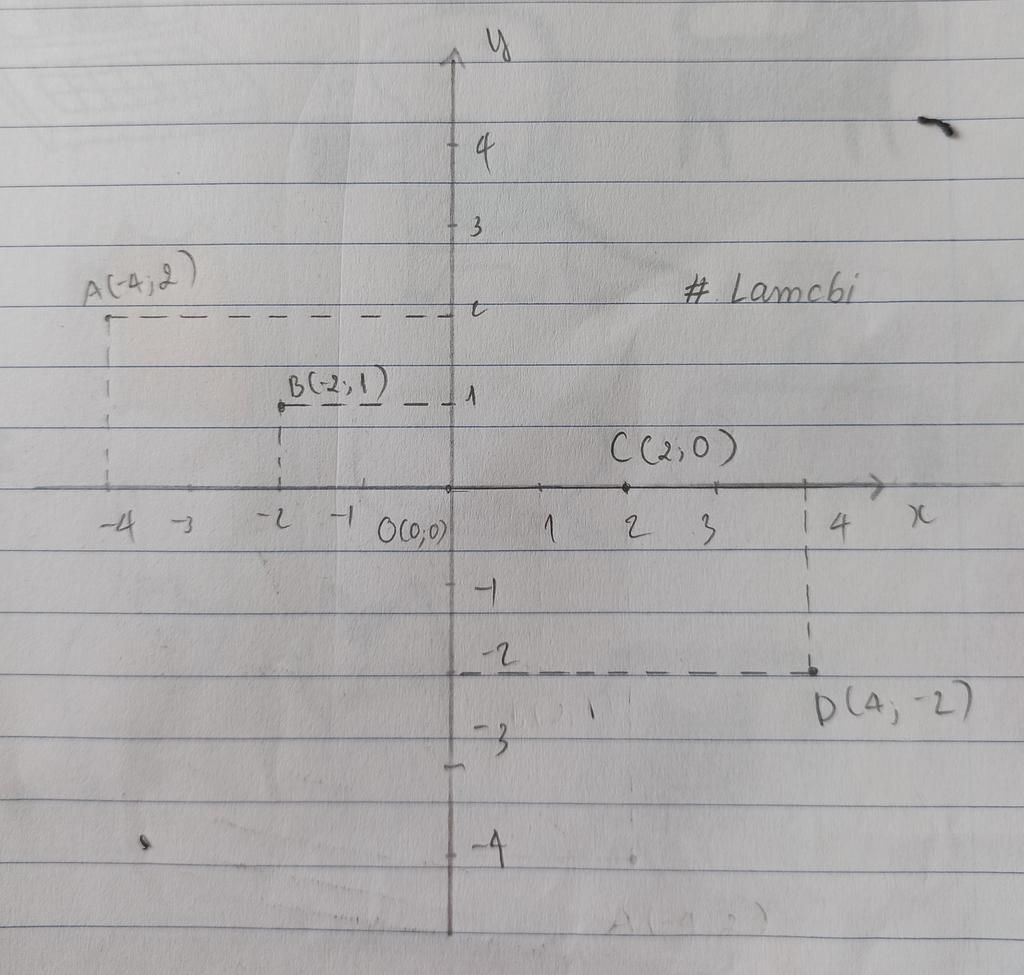 y
4
3
A(-4;2)
2
# Lamcbi
B(-2;1)
1
C(2;0)
-4 -3 -2 -1 O(0;0) 1 2 3 4 x
-1
-2
D(4;-2)
-3
-4